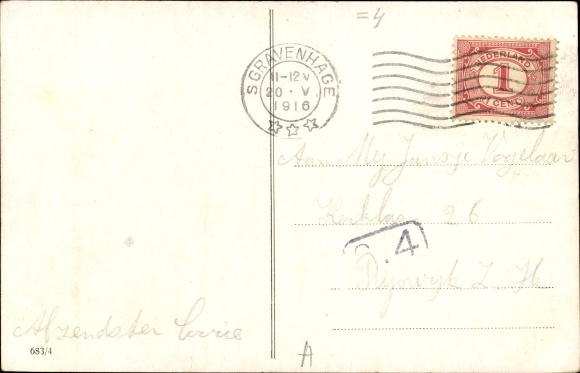 =4
S GRAVENHAGE
11-12 V
20 · V.
1916
NEDERLAND
1
1 CENT
Aan Mej Jansje Vogelaar
Kerklaan 26
.4
Rijswijk Z. H
Afzendster
683/4
A